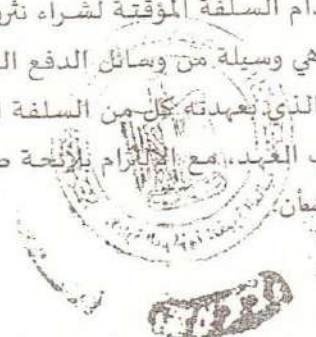 دام السلفة المؤقتة لشراء نثر
هي وسيلة من وسائل الدفع ال
الذي بعهدته كل من السلفة ا
ب العهد، مع الالتزام بلائحة
شأن.